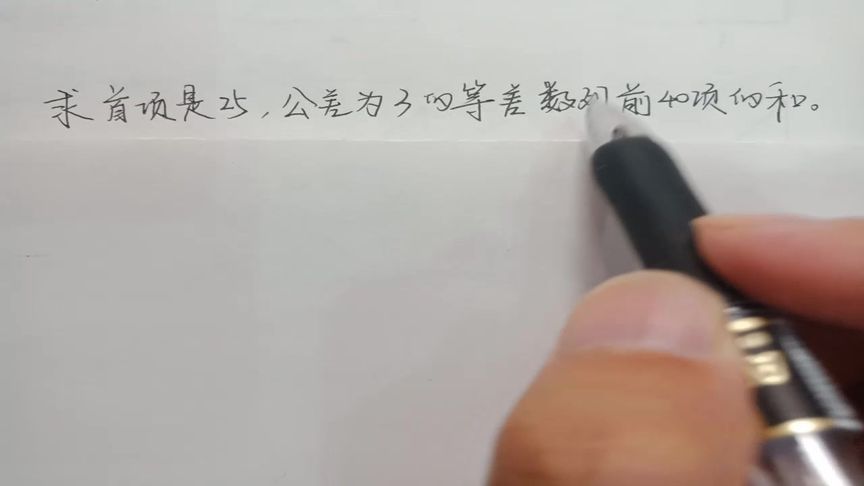 求首项是25,公差为3的等差数列前40项的和。